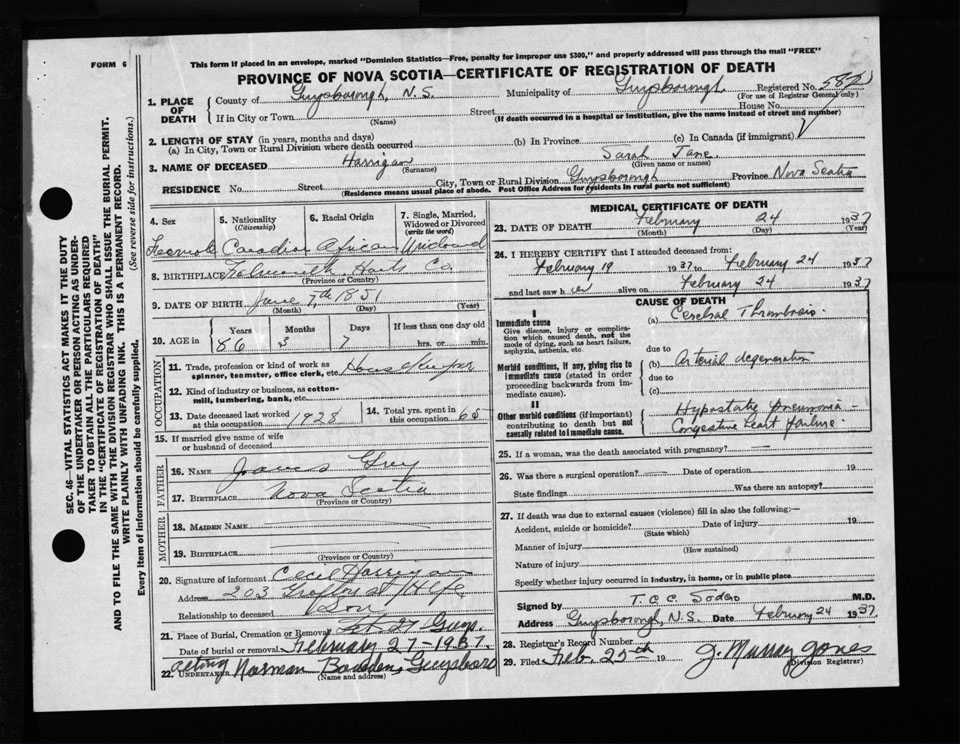 FORM 6
This form if placed in an envelope, marked "Dominion Statistics—Free, penalty for improper use $300," and properly addressed will pass through the mail "FREE"
PROVINCE OF NOVA SCOTIA—CERTIFICATE OF REGISTRATION OF DEATH
SEC. 46—VITAL STATISTICS ACT MAKES IT THE DUTY
OF THE UNDERTAKER OR PERSON ACTING AS UNDER-
TAKER TO OBTAIN ALL THE PARTICULARS REQUIRED
IN THE "CERTIFICATE OF REGISTRATION OF DEATH"
AND TO FILE THE SAME WITH THE DIVISION REGISTRAR WHO SHALL ISSUE THE BURIAL PERMIT.
WRITE PLAINLY WITH UNFADING INK. THIS IS A PERMANENT RECORD.
Every item of information should be carefully supplied. (See reverse side for instructions.)
1. PLACE OF DEATH County of Guysborough, N.S. Municipality of Guysborough Registered No.
(For use of Registrar General only)
If in City or Town Street House No.
(Name) (If death occurred in a hospital or institution, give the name instead of street and number)
2. LENGTH OF STAY (in years, months and days)
(a) In City, Town or Rural Division where death occurred (b) In Province (c) In Canada (if immigrant)
3. NAME OF DECEASED Harrigan Sarah Jane
(Surname) (Given name or names)
RESIDENCE No. Street City, Town or Rural Division Guysborough Province Nova Scotia
(Residence means usual place of abode. Post Office Address for residents in rural parts not sufficient)
4. Sex 5. Nationality 6. Racial Origin 7. Single, Married, Widowed or Divorced
(Citizenship) (write the word)
Female Canadian African Widowed
8. BIRTHPLACE Hants Co.
(Province or Country)
9. DATE OF BIRTH June 7th 1851
(Month) (Day) (Year)
Years Months Days If less than one day old
10. AGE in 86 3 7 hrs. or min.
OCCUPATION
11. Trade, profession or kind of work as spinner, teamster, office clerk, etc. House Keeper
12. Kind of industry or business, as cotton-mill, lumbering, bank, etc.
13. Date deceased last worked at this occupation 1928 14. Total yrs. spent in this occupation 65
15. If married give name of wife
or husband of deceased
FATHER
16. NAME James Grey
17. BIRTHPLACE Nova Scotia
(Province or Country)
MOTHER
18. MAIDEN NAME
19. BIRTHPLACE
(Province or Country)
20. Signature of informant Cecil Harrigan
Address 203 St Hfx
Relationship to deceased Son
21. Place of Burial, Cremation or Removal Feb 27 Guys.
Date of burial or removal February 27-1937
acting
22. UNDERTAKER Norman Bowden, Guysboro
(Name and address)
MEDICAL CERTIFICATE OF DEATH
23. DATE OF DEATH February 24 1937
(Month) (Day) (Year)
24. I HEREBY CERTIFY that I attended deceased from:
February 19 1937 to February 24 1937
and last saw her alive on February 24 1937
CAUSE OF DEATH
I
Immediate cause (a) Cerebral Thrombosis
Give disease, injury or complication which caused death, not the mode of dying, such as heart failure, asphyxia, asthenia, etc.
due to
Morbid conditions, if any, giving rise to immediate cause (stated in order proceeding backwards from immediate cause). (b) Arterial degeneration
due to
(c)
II
Other morbid conditions (if important) contributing to death but not causally related to immediate cause. Hypostatic pneumonia
Congestive heart failure
25. If a woman, was the death associated with pregnancy?
26. Was there a surgical operation? Date of operation 19
State findings Was there an autopsy?
27. If death was due to external causes (violence) fill in also the following:—
Accident, suicide or homicide? Date of injury 19
(State which)
Manner of injury
(How sustained)
Nature of injury
Specify whether injury occurred in industry, in home, or in public place
Signed by M.D.
Address Guysborough, N.S. Date February 24 1937
28. Registrar's Record Number
29. Filed Feb. 25th 19 J. Murray Jones
(Division Registrar)